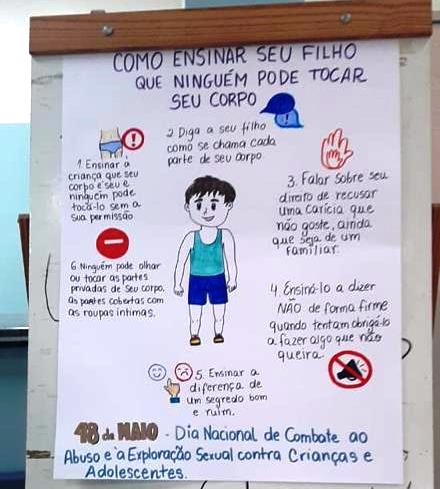 COMO ENSINAR SEU FILHO
QUE NINGUÉM PODE TOCAR
SEU CORPO
1. Ensinar a
criança que seu
corpo é seu e
ninguém pode
tocá-lo sem a
sua permissão
2. Diga a seu filho
como se chama cada
parte de seu corpo
3. Falar sobre seu
direito de recusar
uma carícia que
não goste, ainda
que seja de um
familiar.
4. Ensiná-lo a dizer
NÃO de forma firme
quando tentam obrigá-lo
a fazer algo que não
queira.
5. Ensinar a
diferença de
um segredo bom
e ruim.
6. Ninguém pode olhar
ou tocar as partes
privadas de seu corpo,
as partes cobertas com
as roupas íntimas.
18 de MAIO - Dia Nacional de Combate ao
Abuso e à Exploração Sexual contra Crianças e
Adolescentes.